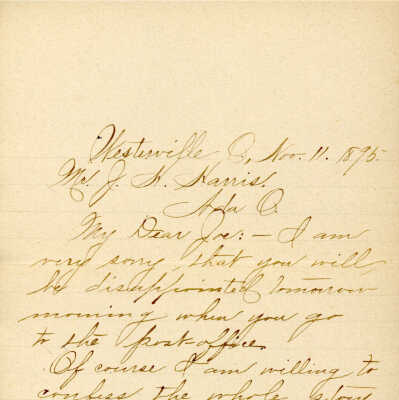 Westerville O., Nov. 11. 1895.
Mr. J. H. Harris.
Ada O.
My Dear Joe:— I am
very sorry that you will
be disappointed tomorrow
morning when you go
to the post-office.
Of course I am willing to
confess the whole story